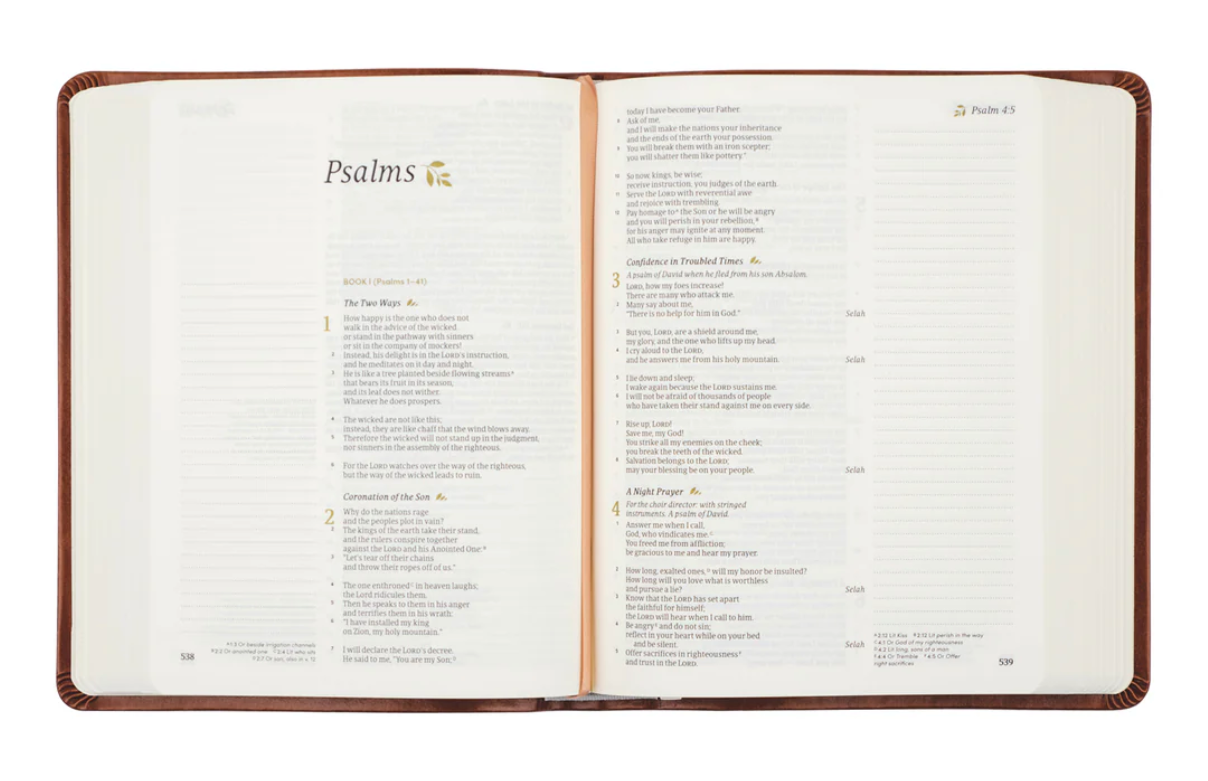 Psalms
BOOK I (Psalms 1–41)
The Two Ways
1 How happy is the one who does not
walk in the advice of the wicked
or stand in the pathway with sinners
or sit in the company of mockers!
2 Instead, his delight is in the LORD's instruction,
and he meditates on it day and night.
3 He is like a tree planted beside flowing streams A
that bears its fruit in its season,
and its leaf does not wither.
Whatever he does prospers.
4 The wicked are not like this;
instead, they are like chaff that the wind blows away.
5 Therefore the wicked will not stand up in the judgment,
nor sinners in the assembly of the righteous.
6 For the LORD watches over the way of the righteous,
but the way of the wicked leads to ruin.
Coronation of the Son
2 Why do the nations rage
and the peoples plot in vain?
2 The kings of the earth take their stand,
and the rulers conspire together
against the LORD and his Anointed One: B
3 "Let's tear off their chains
and throw their ropes off of us."
4 The one enthroned C in heaven laughs;
the Lord ridicules them.
5 Then he speaks to them in his anger
and terrifies them in his wrath:
6 "I have installed my king
on Zion, my holy mountain."
7 I will declare the LORD's decree.
He said to me, "You are my Son; D
A 1:3 Or beside irrigation channels
B 2:2 Or anointed one C 2:4 Lit who sits
D 2:7 Or son, also in v. 12
538
Psalm 4:5
today I have become your Father.
8 Ask of me,
and I will make the nations your inheritance
and the ends of the earth your possession.
9 You will break them with an iron scepter;
you will shatter them like pottery."
10 So now, kings, be wise;
receive instruction, you judges of the earth.
11 Serve the LORD with reverential awe
and rejoice with trembling.
12 Pay homage to A the Son or he will be angry
and you will perish in your rebellion, B
for his anger may ignite at any moment.
All who take refuge in him are happy.
Confidence in Troubled Times
3 A psalm of David when he fled from his son Absalom.
LORD, how my foes increase!
There are many who attack me.
2 Many say about me,
"There is no help for him in God." Selah
3 But you, LORD, are a shield around me,
my glory, and the one who lifts up my head.
4 I cry aloud to the LORD,
and he answers me from his holy mountain. Selah
5 I lie down and sleep;
I wake again because the LORD sustains me.
6 I will not be afraid of thousands of people
who have taken their stand against me on every side.
7 Rise up, LORD!
Save me, my God!
You strike all my enemies on the cheek;
you break the teeth of the wicked.
8 Salvation belongs to the LORD;
may your blessing be on your people. Selah
A Night Prayer
4 For the choir director: with stringed
instruments. A psalm of David.
1 Answer me when I call,
God, who vindicates me. C
You freed me from affliction;
be gracious to me and hear my prayer.
2 How long, exalted ones, D will my honor be insulted?
How long will you love what is worthless
and pursue a lie? Selah
3 Know that the LORD has set apart
the faithful for himself;
the LORD will hear when I call to him.
4 Be angry E and do not sin;
reflect in your heart while on your bed
and be silent. Selah
5 Offer sacrifices in righteousness F
and trust in the LORD.
A 2:12 Lit Kiss B 2:12 Lit perish in the way
C 4:1 Or God of my righteousness
D 4:2 Lit long, sons of a man
E 4:4 Or Tremble F 4:5 Or Offer
right sacrifices
539